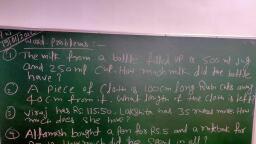 Word Problems :-
① The milk from a bottle filled up a 500 ml jug
and 250 ml cup. How much milk did the bottle
have?
② A piece of cloth is 100cm long Rubi cuts away
40cm from it. What length of the cloth is left?
③ Viraj has Rs 11550. Lakshita has 35 more. How
much does she have?
④ bought a pen for Rs 5 and a notebook for
Rs How much did he spend in all?